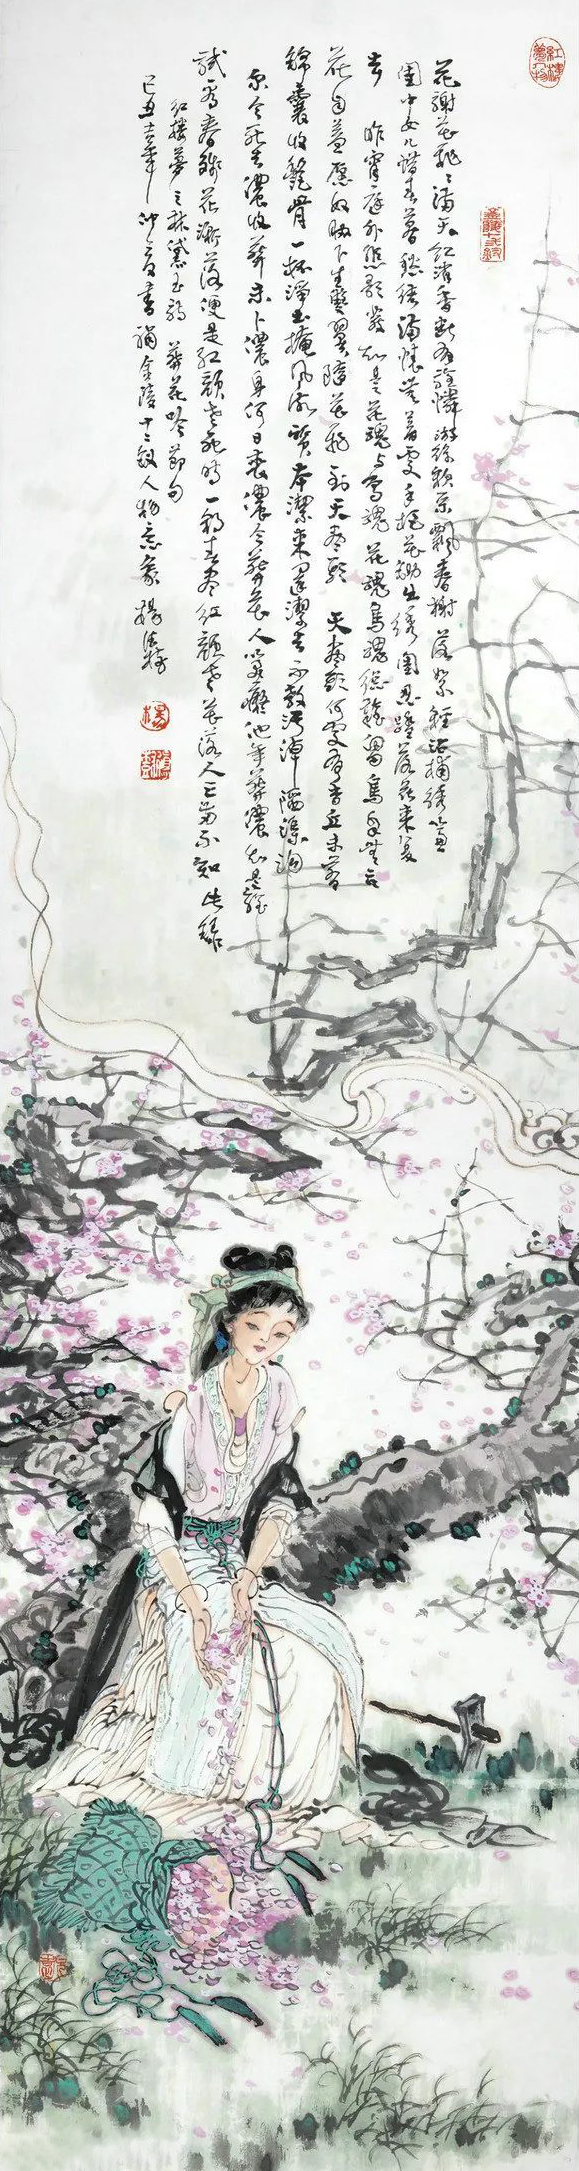 紅樓夢人物
金陵十二釵
花謝花飛〻滿天紅消香斷有誰憐游絲軟系飄春榭落絮輕沾撲繡簾
閨中女兒惜春暮愁緒滿懷無著處手把花鋤出繡閨忍踏落花來復
去 昨宵庭外悲歌發知是花魂与鳥魂花魂鳥魂總難留鳥自無言
花自羞願奴脇下生雙翼隨花飛到天盡頭 天盡頭何處有香丘未若
錦囊收艷骨一抔淨土掩風流質本潔來還潔去不教污淖陷渠沟
尔今死去儂收葬未卜儂身何日喪儂今葬花人笑癡他年葬儂知是誰
試看春殘花漸落便是紅顏老死時一朝春盡紅顏老花落人亡兩不知此錄
紅樓夢之林黛玉詩 葬花吟節句
己丑吉年 書 金陵十二釵人物意象 楊
楊